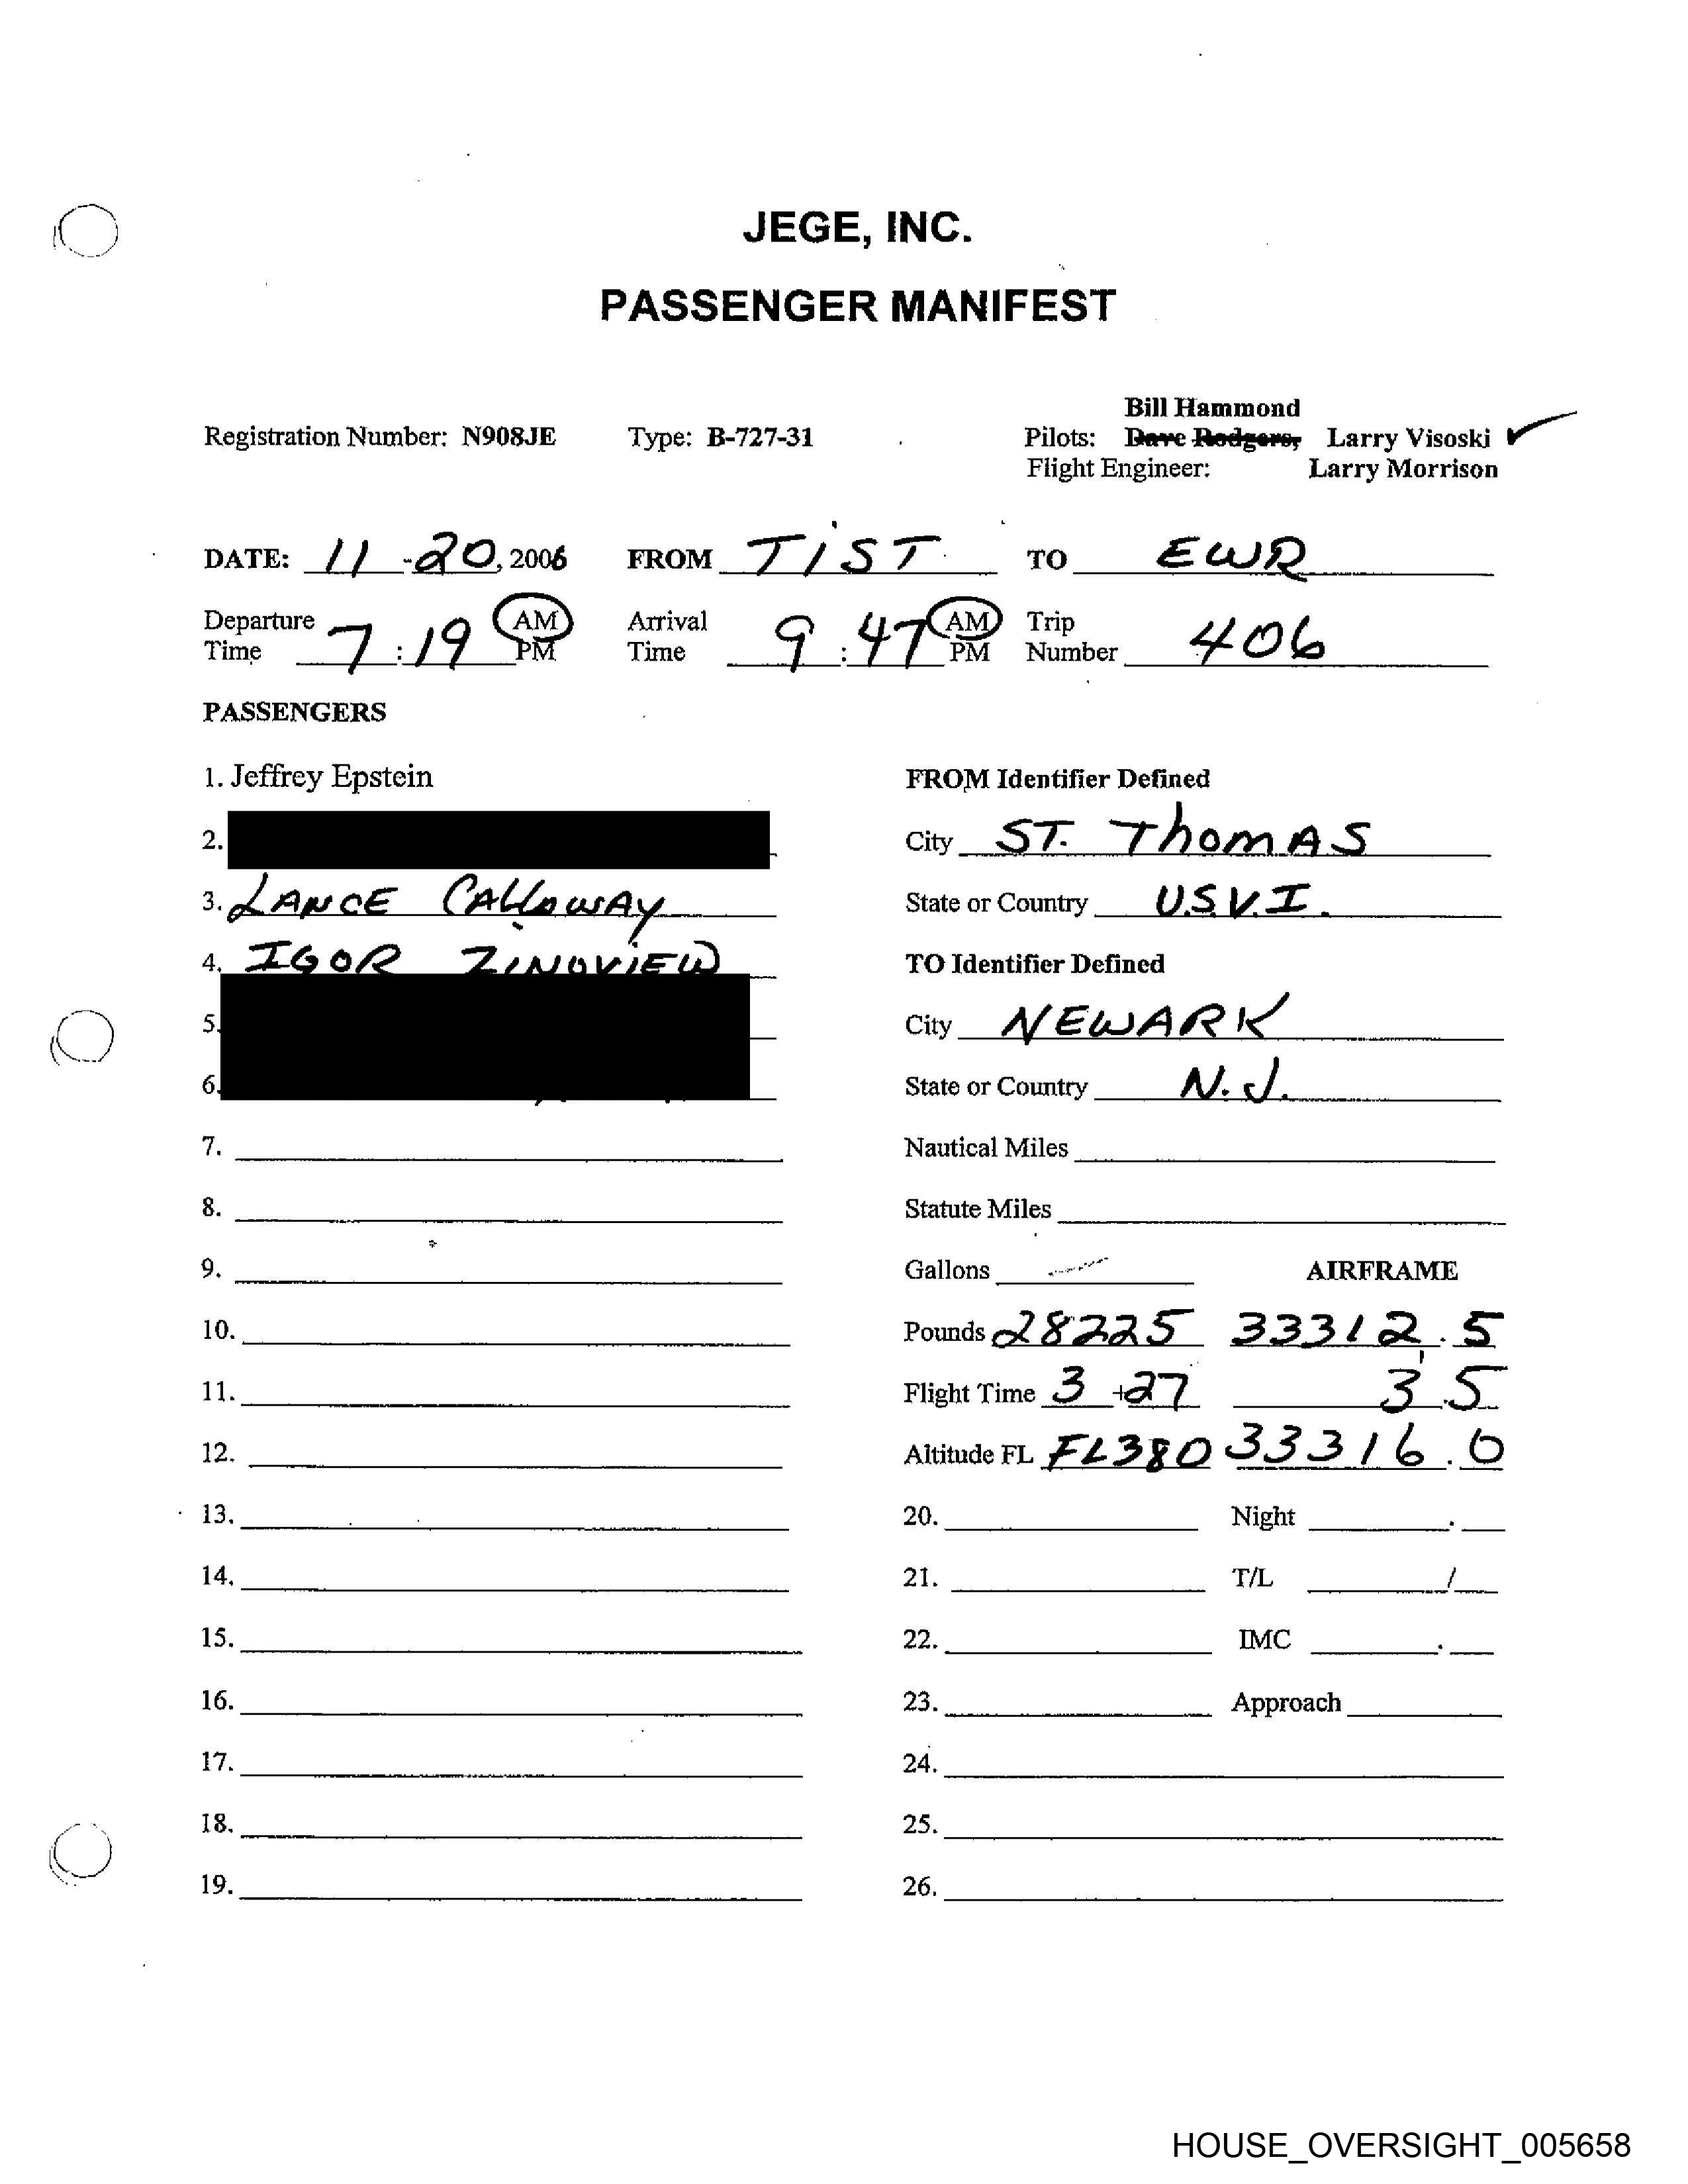 JEGE, INC.
PASSENGER MANIFEST
Bill Hammond
Registration Number: N908JE Type: B-727-31 Pilots: Dave Rodgers, Larry Visoski ✓
Flight Engineer: Larry Morrison
DATE: 11-20, 2006 FROM TIST TO EWR
Departure Time 7:19 AM PM Arrival Time 9:47 AM PM Trip Number 406
PASSENGERS
1. Jeffrey Epstein FROM Identifier Defined
2. City ST. ThomAS
3. LANCE CALLOWAY State or Country U.S.V.I.
4. IGOR ZINOVIEW TO Identifier Defined
5. City NEWARK
6. State or Country N.J.
7. Nautical Miles
8. Statute Miles
9. Gallons AIRFRAME
10. Pounds 28225 33312.5
11. Flight Time 3+27 3.5
12. Altitude FL FL380 33316.0
13. 20. Night .
14. 21. T/L /
15. 22. IMC .
16. 23. Approach
17. 24.
18. 25.
19. 26.
HOUSE_OVERSIGHT_005658